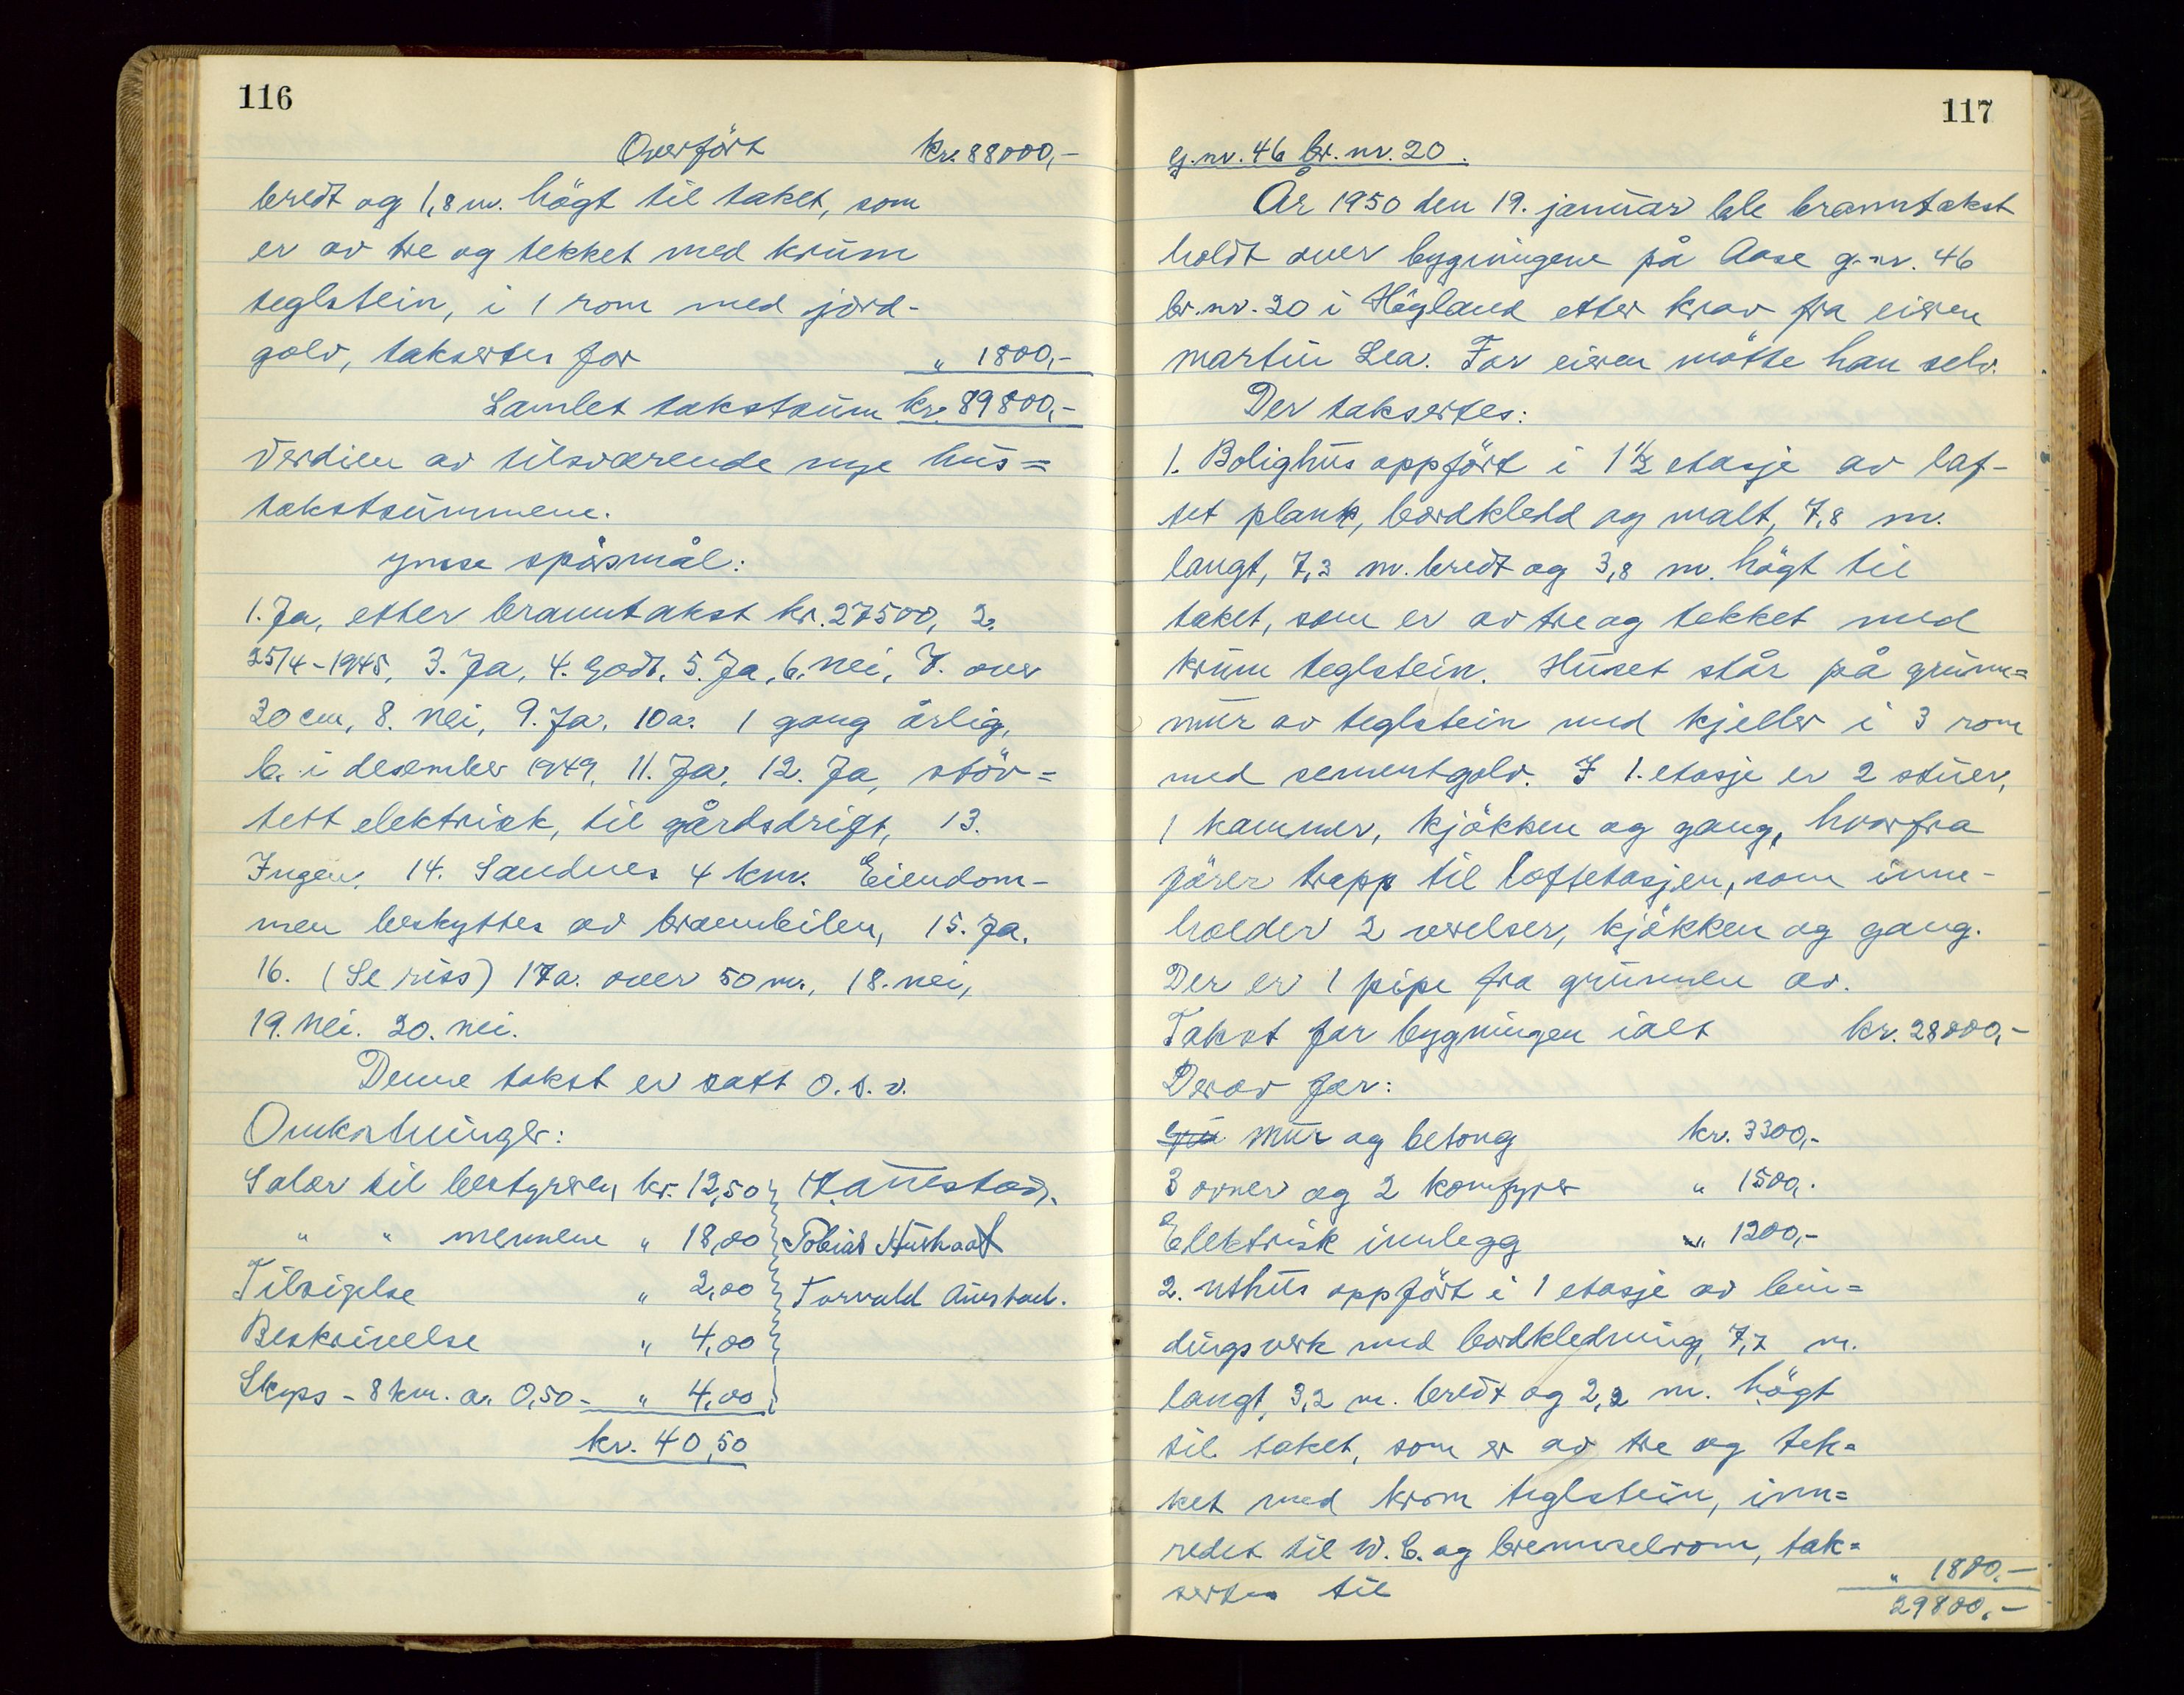 116
Overført kr. 88000,-
bredt og 1,8 m. högt til taket, som
er av tre og tekket med krum
teglstein, i 1 rom med jord-
golv, takseres for " 1800,-
Samlet takstsum kr. 89800,-
Verdien av tilsvarende nye hus=
takstsummene.
Ymse spörsmål:
1. Ja, etter branntakst kr. 27500, 2.
25/4-1945, 3. Ja, 4. Godt, 5. Ja, 6. Nei, 7. over
30 cm, 8. Nei, 9. Ja. 10a. 1 gang årlig,
b. i desember 1949, 11. Ja, 12. Ja, stöv=
tett elektrisk, til gårdsdrift, 13.
Ingen. 14. Sandnes 4 km. Eiendom-
men beskyttes av brannbilen, 15. Ja.
16. (Se riss) 17a. over 50 m., 18. nei,
19. Nei. 20. nei.
Denne takst er satt o.s.v.
Omkostninger:
Salær til bestyreren kr. 12,50
" " mennene " 18,00 Tobias
Tilsigelse " 2,00 Torvald Austad.
Beskrivelse " 4,00
Skyss - 8 km. a. 0,50 - " 4,00
kr. 40,50
117
g.nr. 46 br. nr. 20.
År 1950 den 19. januar ble branntakst
holdt over bygningene på Aase g.nr. 46
br.nr. 20 i Högland etter krav fra eieren
Martin Lea. For eieren mötte han selv.
Der taksertes:
1. Bolighus oppfört i 1½ etasje av laf-
tet plank, bordkledd og malt, 7,8 m.
langt, 7,3 m. bredt og 3,8 m. högt til
taket, som er av tre og tekket med
krum teglstein. Huset står på grunn=
mur av teglstein med kjeller i 3 rom
med sementgolv. I 1. etasje er 2 stuer,
1 kammer, kjökken og gang, hvorfra
förer trapp til loftetasjen, som inne-
holder 2 værelser, kjökken og gang.
Der er 1 pipe fra grunnen av.
Takst for bygningen ialt kr. 28000,-
Derav for:
Gru mur og betong kr. 3300,-
3 ovner og 2 komfyrer " 1500,-
Elektrisk innlegg " 1200,-
2. Uthus oppfört i 1 etasje av bin=
dingsverk med bordkledning, 7,7 m.
langt, 3,2 m. bredt og 2,2 m. högt
til taket, som er av tre og tek=
ket med krom teglstein, inn=
redet til W.C. og brenselrom, tak=
sertes til " 1800,-
29800,-